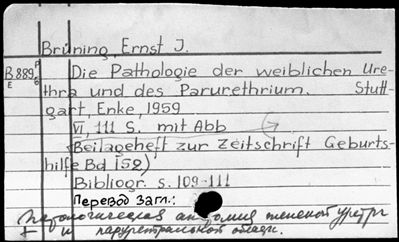 Brüning Ernst J.
B 889 p/6
E
Die Pathologie der weiblichen Ure-
thra und des Parurethrium. Stutt-
gart, Enke, 1959
VI, 111 S. mit Abb
(Beilageheft zur Zeitschrift Geburts-
hilfe Bd 152)
Bibliogr. s. 109-111
Перевод Загл.:
Патологическая анатомия женской уретры
и парауретральной области.